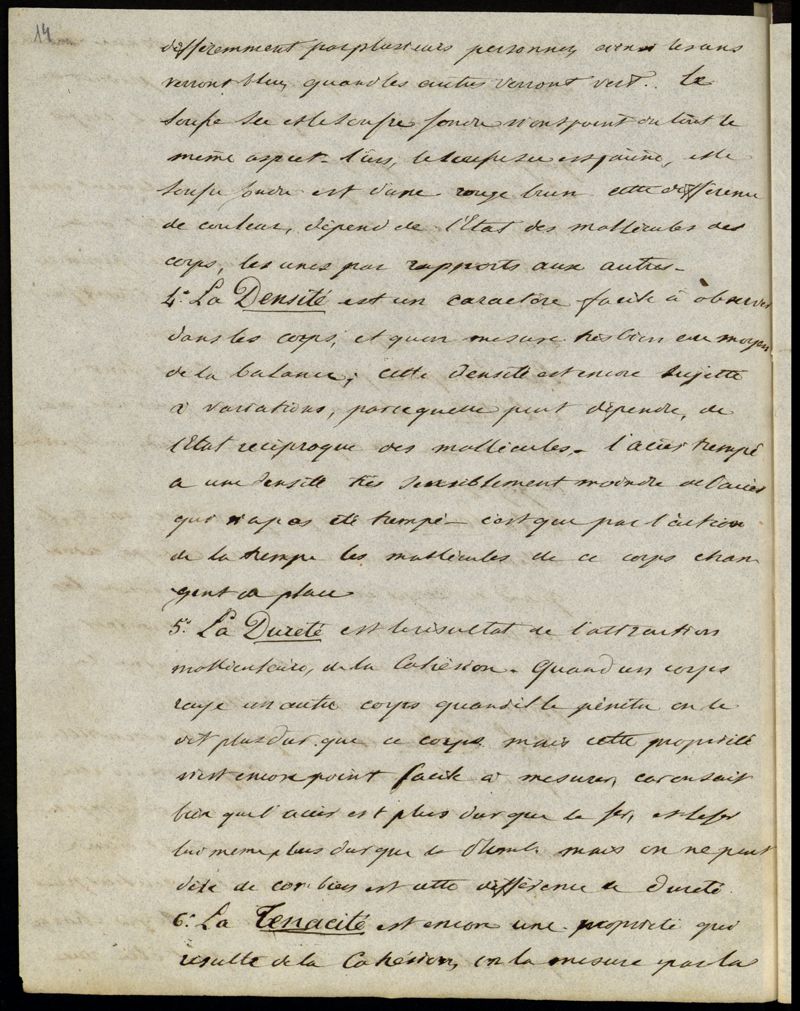 14
differemment par plusieurs personnes ainsi les uns
verront bleu, quand les autres verront vert. Le
Soufre sec et le soufre fondu n'ont point du tout le
même aspect. L'un, le soufre sec est jaune, et le
soufre fondu est d'une rouge brun cette différence
de couleur, dépend de l'Etat des mollécules des
corps, les unes par rapports aux autres.
4.° La Densité est un caractère facile à observer
dans les corps, et qu'on mesure très bien au moyen
de la balance; cette densité est encore sujette
à variations, parcequelle peut dépendre, de
l'Etat réciproque des mollécules. l'acier trempé
a une densité très sensiblement moindre de l'acier
qui n'a pas été trempé. c'est que par l'action
de la trempe les mollécules de ce corps chan
gent de place
5.° La Dureté est le résultat de l'attraction
molléculaire, de la Cohésion. Quand un corps
raye un autre corps quand il le pénètre on le
dit plus dur que ce corps. mais cette propriété
n'est encore point facile à mesurer, car on sait
bien que l'acier est plus dur que le fer, et le fer
lui même plus dur que le Plomb. mais on ne peut
dire de combien est cette différence de dureté.
6.° La Tenacité est encore une propriété qui
résulte de la Cohésion, on la mesure par la